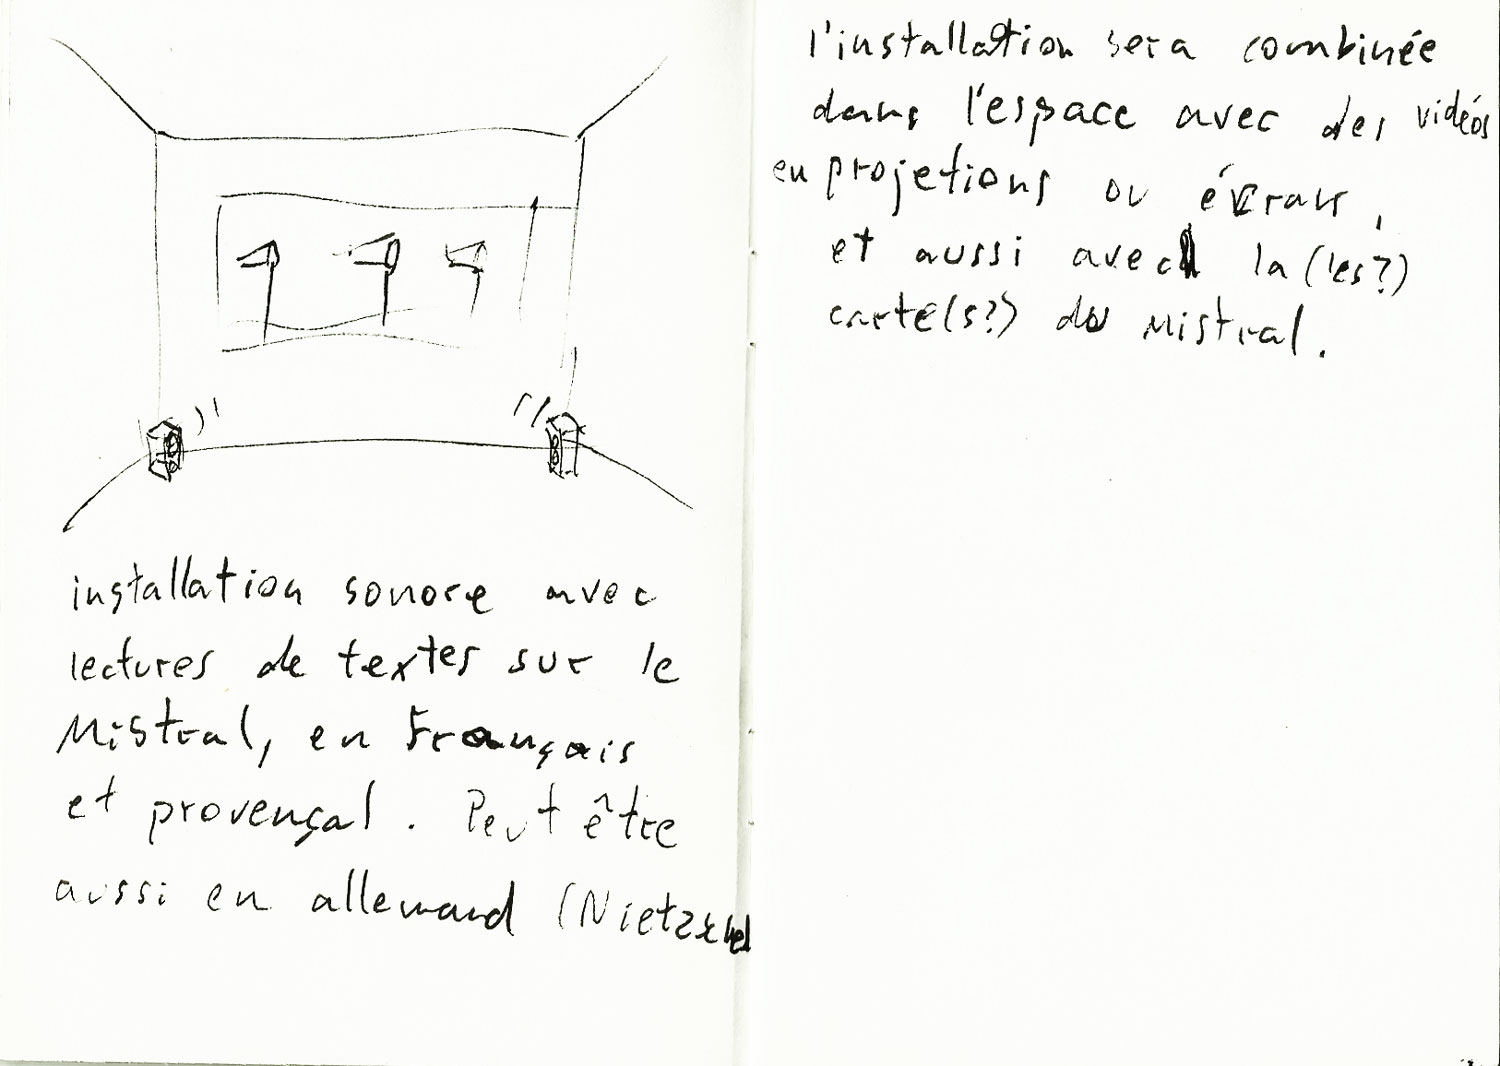 installation sonore avec
lectures de textes sur le
Mistral, en Français
et provençal. Peut être
aussi en allemand (Nietzsche)
l'installation sera combinée
dans l'espace avec des vidéos
en projetions ou écrans,
et aussi avec la (les?)
carte(s?) du Mistral.